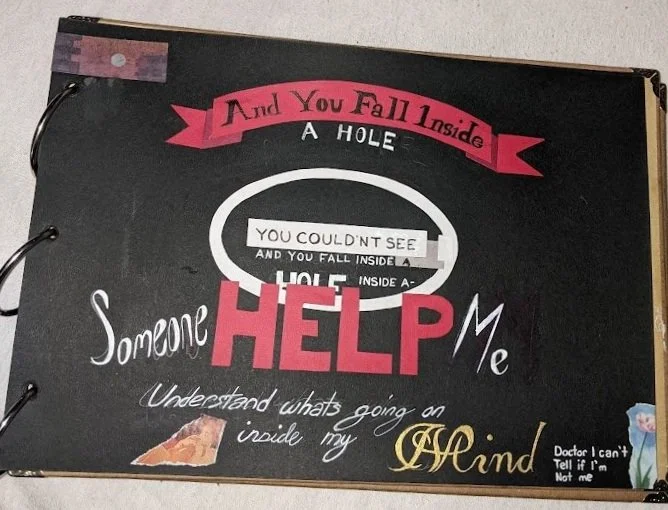 And You Fall Inside
A HOLE
YOU COULD'NT SEE
AND YOU FALL INSIDE A
HOLE INSIDE A-
Someone HELP Me
Understand whats going on
inside my Mind
Doctor I can't
Tell if I'm
Not me